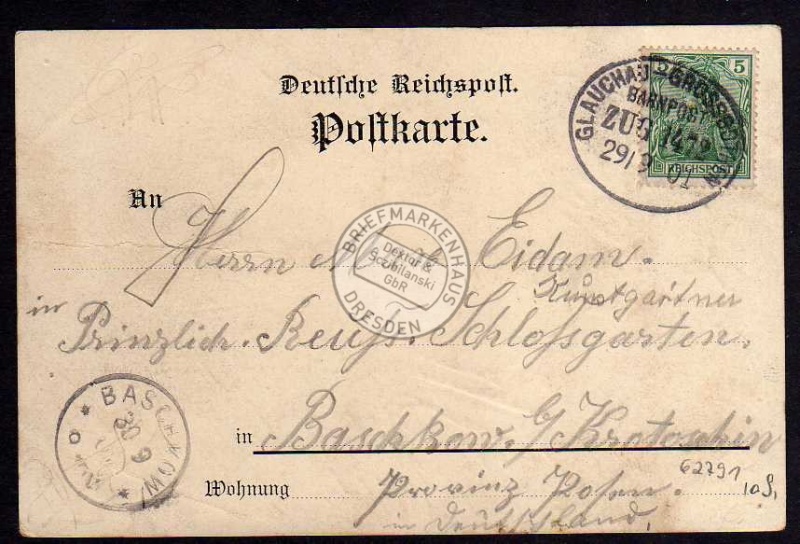 Deutsche Reichspost.
Postkarte.
5
REICHSPOST
GLAUCHAU - GROSSBOTHEN
BAHNPOST
ZUG 1479
29/9 01
An
Herrn Eidam.
Kunstgärtner
in
Prinzlich. Reuß. Schlossgarten.
in Baschkow. b/ Krotoschin
Wohnung Provinz Posen.
in Deutschland,
62791
10,
BAS KOW
30 9
BRIEFMARKENHAUS
Dextor &
Szubilanski
GbR
DRESDEN